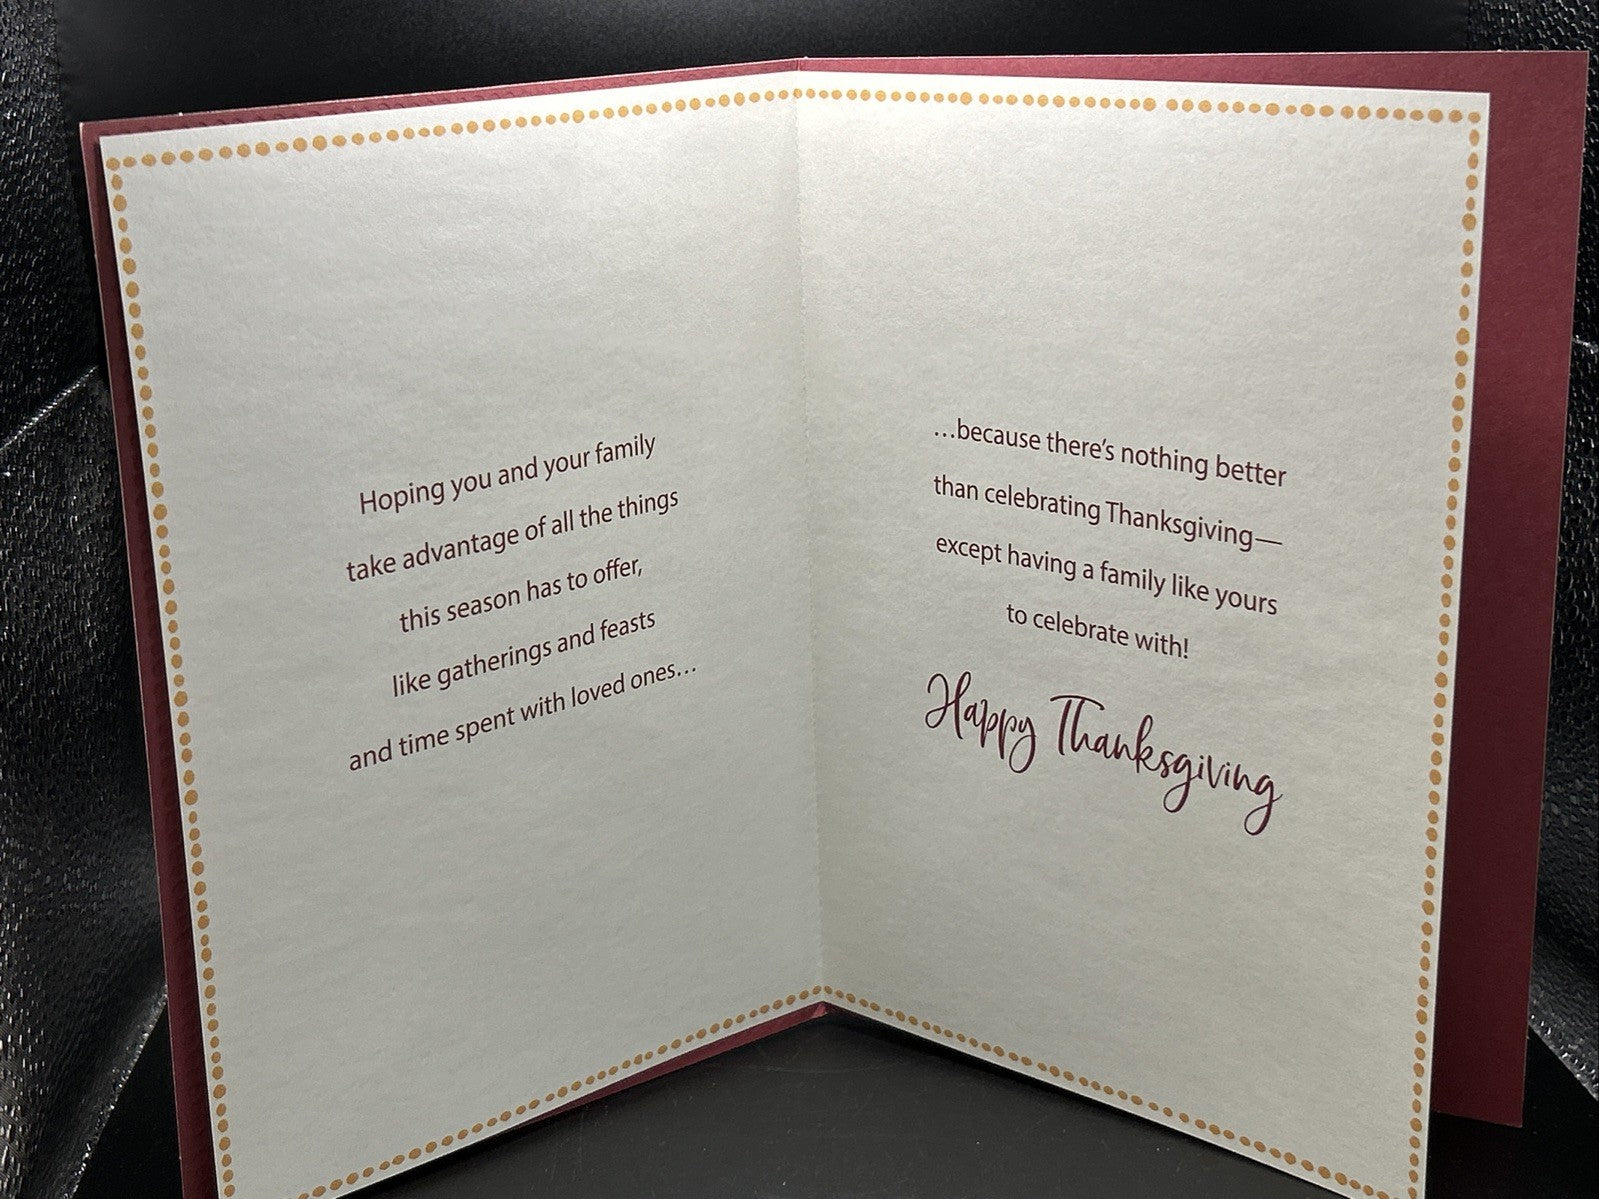 Hoping you and your family
take advantage of all the things
this season has to offer,
like gatherings and feasts
and time spent with loved ones...
...because there's nothing better
than celebrating Thanksgiving—
except having a family like yours
to celebrate with!
Happy Thanksgiving